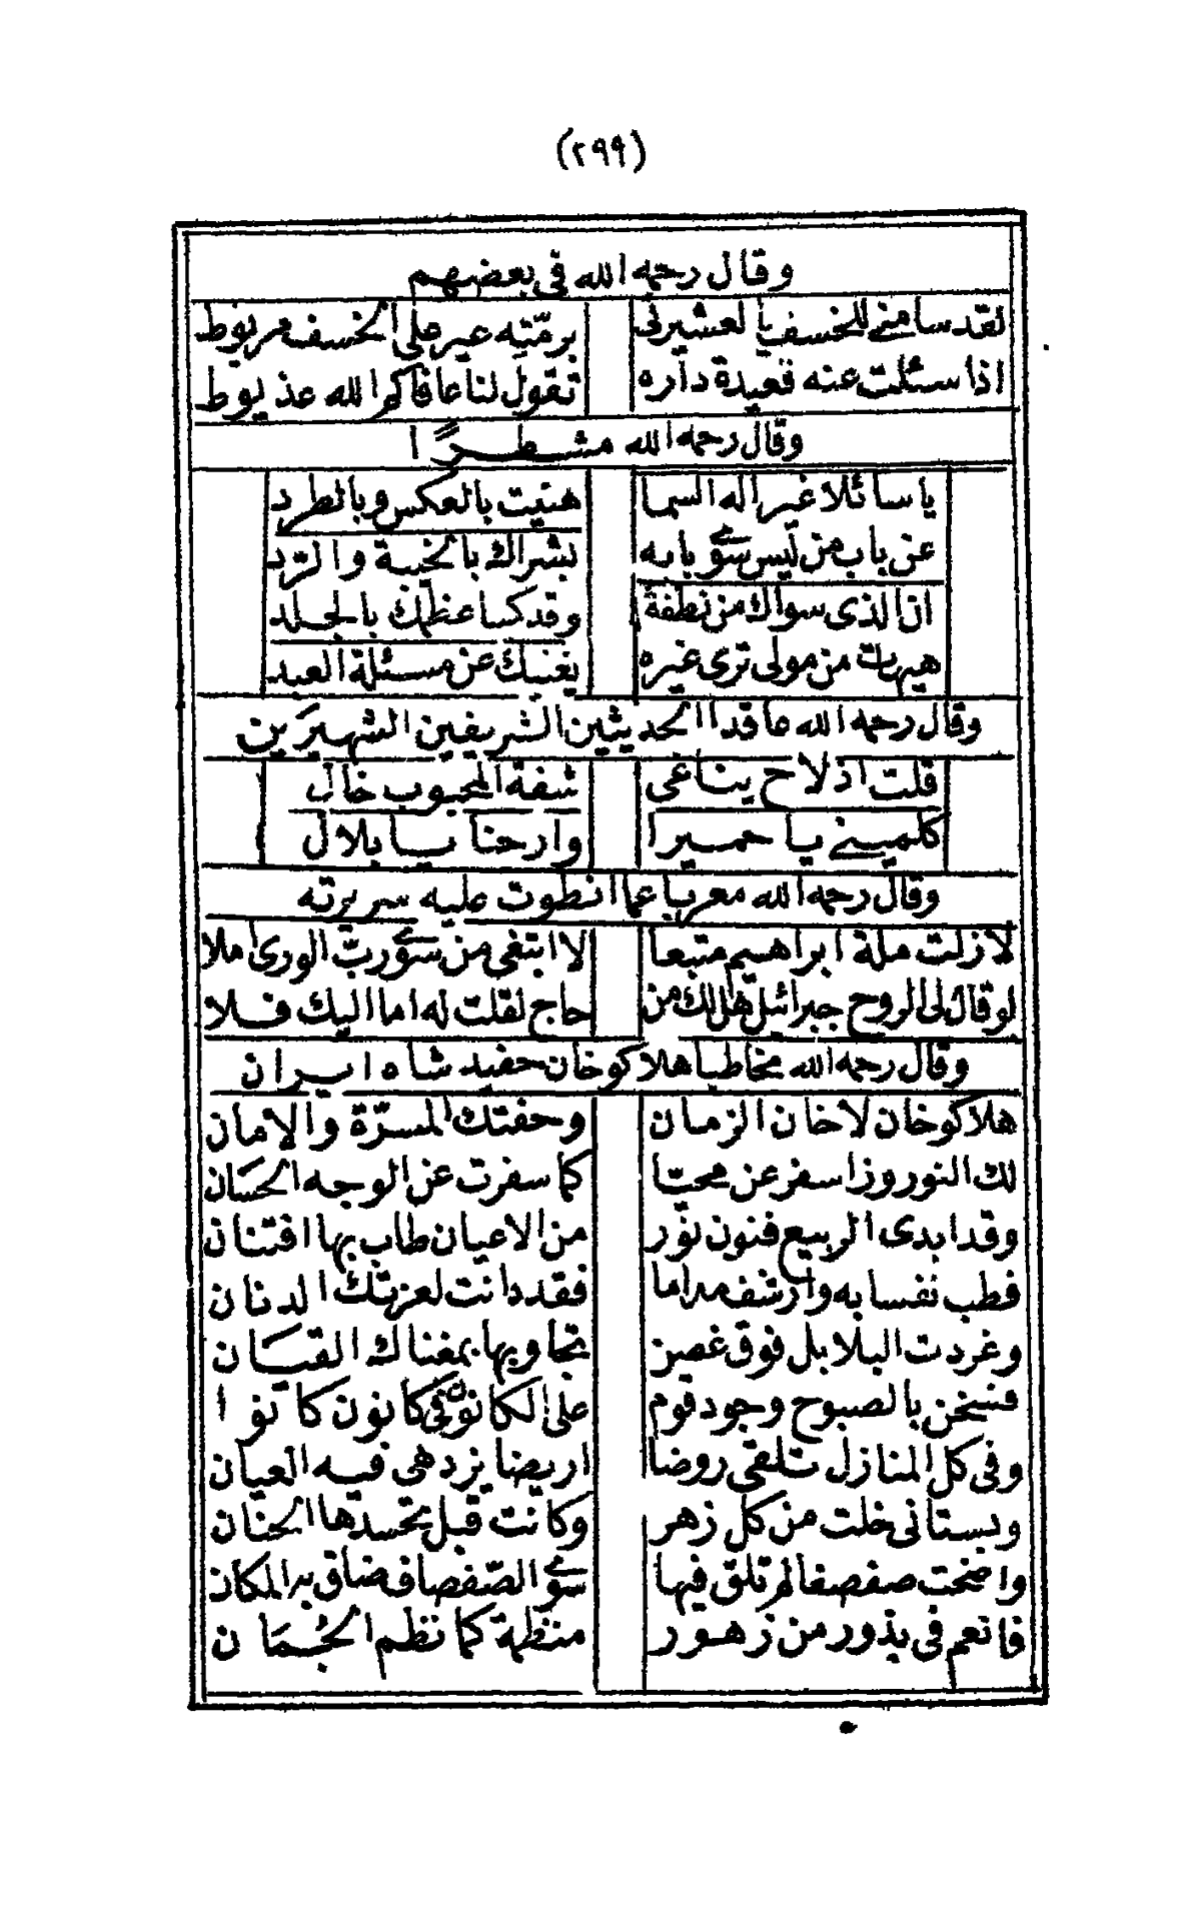 (٢٩٩)
وقال رحمه الله في بعضهم
لقد سامني للخسف بالعشيرلي برمّته عير على الخسف مربوط
اذا سئلت عنه قعيدة داره تقول لنا عافاكم الله عذيوط
وقال رحمه الله مشطرًا
يا سائلا غير اله السما هنيت بالعكس وبالطرد
عن باب من ليس سوى بابه بشراك بالخيبة والرّد
ان الذى سواك من نطفة وقد كسا عظمك بالجلد
هيهات من مولى ترى غيره يغنيك عن مسئلة العبد
وقال رحمه الله عاقدا الحديثين الشريفين الشهيرين
قلت اذ لاح يناغى شفة المحبوب خال
كلميني يا حميرا وارحنا يا بلال
وقال رحمه الله معربا عما انطوت عليه سريرته
لا زلت ملة ابراهيم متبعا لا ابتغى من سوى ربّ الورى املا
لو قال لى الروح جبرائيل هل لك من حاج لقلت له اما اليك فلا
وقال رحمه الله مخاطبا هلاكو خان حفيد شاه ايران
هلاكو خان لا خان الزمان وحفتك المسرّة والامان
لك النوروز اسفر عن محيّا كما سفرت عن الوجه الحسان
وقد ابدى الربيع فنون نور من الاعيان طاب بها افتنان
فطب نفسا به وارشف مداما فقد دانت لعزتك الدنان
وغردت البلابل فوق غصن تجاوبها بمغناك القيان
فسخن بالصبوح وجود قوم على الكانون في كانون كانوا
وفى كل المنازل تلقى روضا اريضا يزدهى فيه العيان
وبستانى خلت من كل زهر وكانت قبل تحسدها الجنان
واضحت صفصفا لم تلق فيها سوى الصّفصاف ضاق به المكان
فانعم فى بذور من زهور منظمة كما نظم الجُمَان